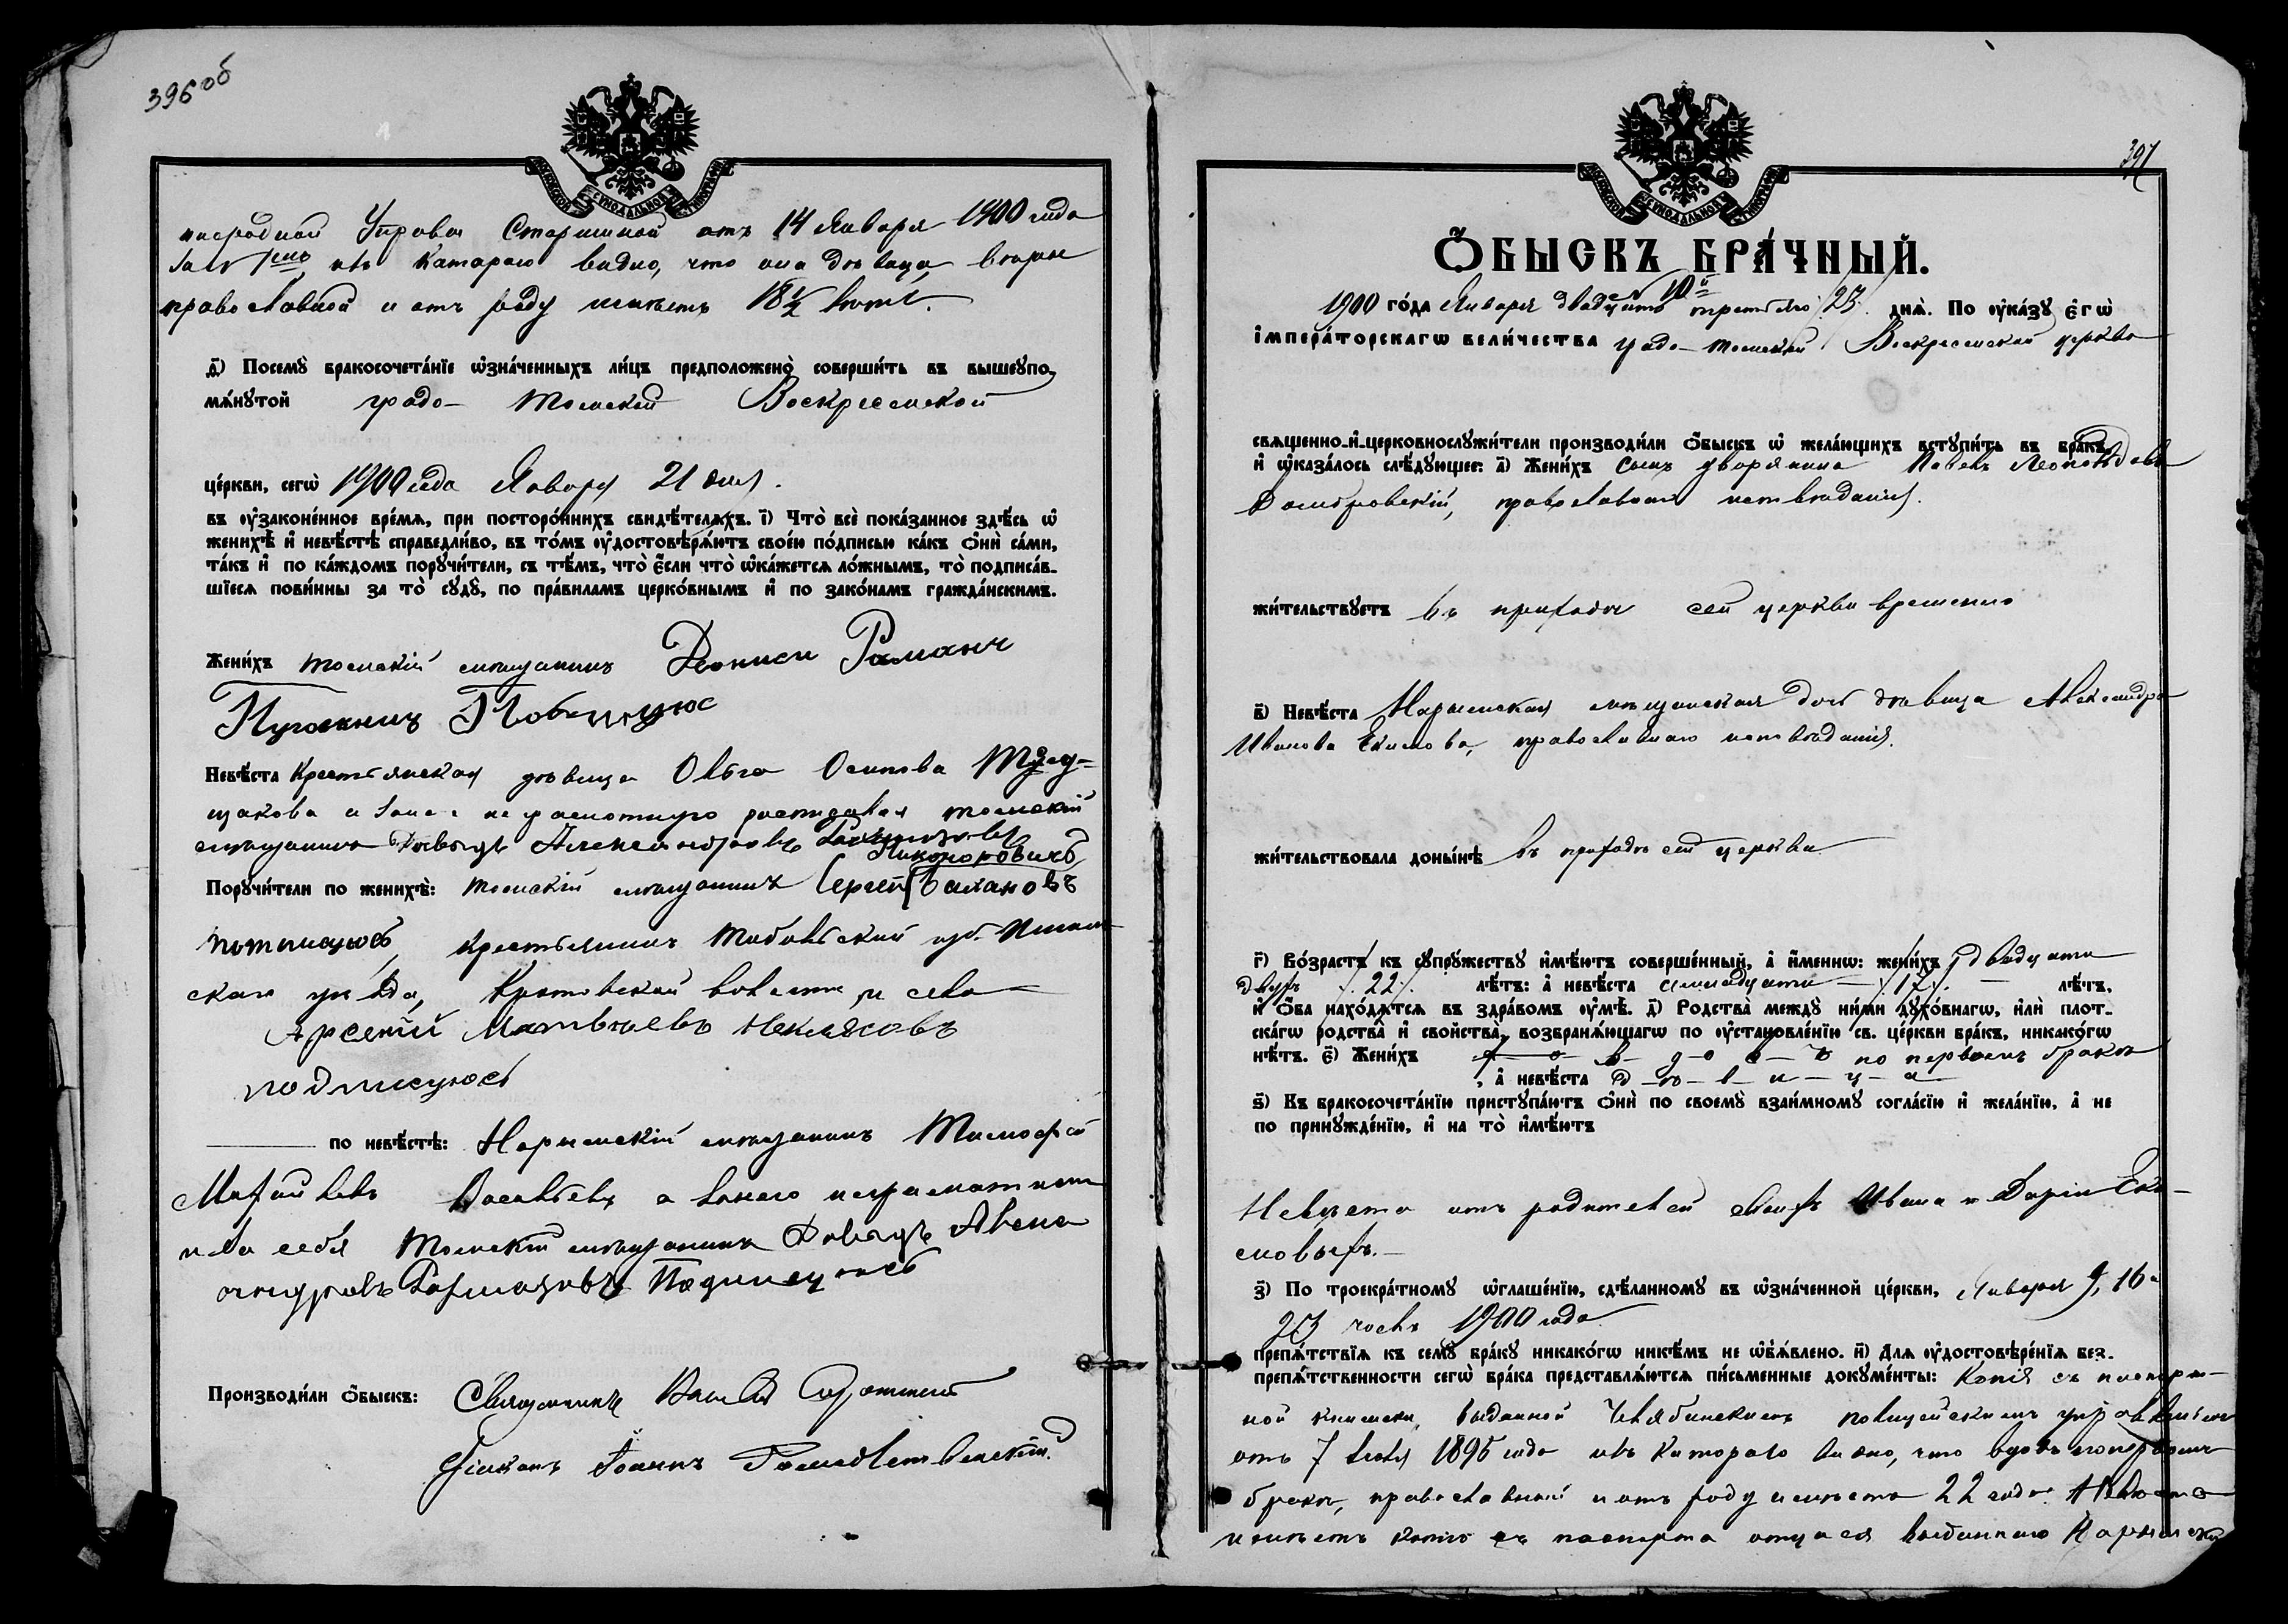 396 об
народной Управы Старшиной отъ 14 Января 1900 года
за № изъ котораго видно, что она дѣвица, вѣры
православной и отъ роду имѣетъ 18½ лѣтъ.
д҃) Посемꙋ̀ бракосочета́нїе ѡ҆зна́ченныхъ ли́цъ предположено̀ соверши́ть въ вышеꙋпо-
мѧ́нꙋтой градо- Томской Воскресенской
це́ркви, сегѡ̀ 1900 года Января 21 дня.
въ ᲂу҆законе́нное вре́мѧ, при посторо́ннихъ свидѣ́телѧхъ. і҃) Что̀ всѐ пока́занное здѣ́сь ѡ҆
женихѣ̀ и҆ невѣ́стѣ справедли́во, въ то́мъ ᲂу҆достовѣрѧ́ютъ свое́ю по́дписью ка́къ ѻ҆нѝ са́ми,
та́къ и҆ по ка́ждомъ порꙋчи́тели, съ тѣ́мъ, что̀ є҆́сли что̀ ѡ҆ка́жетсѧ ло́жнымъ, то̀ подписа́в-
шїесѧ пови́нны за то̀ сꙋдꙋ̀, по пра́виламъ церко́внымъ и҆ по зако́намъ гражда́нскимъ.
Жени́хъ томскій мѣщанинъ
Невѣ́ста крестьянская дѣвица Ольга Осипова
неграмотную росписался томскій
мѣщанинъ Давыдъ Александровъ
Никоноровичъ
Порꙋчи́тели по женихѣ̀: томскій мѣщанинъ Сергей Балановъ
потписуюсь, крестьянинъ Тобольской губ. Ишим-
скаго уѣзда, Кротовской волости, и села
Арсений Матвѣевъ Некрасовъ
подписуюсь
по невѣ́стѣ: Нарымскій мѣщанинъ Тимофей
Васильевъ а вмѣсто неграмотнаго
и за себя Томскій мѣщанинъ Давыдъ Алекс
андровъ Подписуюсь
Производи́ли ѻ҆́быскъ: Священникъ
Діаконъ Іоаннъ
397
Ѻ҆́быскъ бра́чный.
10й
1900 го́да Января двадцать третьяго /23/. днѧ̀. По ᲂу҆ка́зꙋ є҆гѡ̀
і҆мпера́торскагѡ вели́чества градо-Томской Воскресенской церкви
свѧще́нно-и҆-церковнослꙋжи́тели производи́ли ѻ҆́быскъ ѡ҆ жела́ющихъ встꙋпи́ть въ бра́къ,
и҆ ѡ҆каза́лось слѣ́дꙋющее: а҃) Жени́хъ сынъ дворянина Павелъ Леопольдовъ
Домбровскій, православнаго исповѣданія.
жи́тельствꙋетъ въ приходѣ сей церкви временно
в҃) Невѣ́ста Нарымская мѣщанская дочь дѣвица Александра
Иванова Екимова, православнаго исповѣданія.
жи́тельствовала доны́нѣ въ приходѣ сей церкви
г҃) Во́зрастъ къ сꙋпрꙋ́жествꙋ и҆мѣ́ютъ соверше́нный, а҆ и҆́меннѡ: жени́хъ двадцати
двухъ /.22/. лѣ́тъ: а҆ невѣ́ста семнадцати /.17/. лѣ́тъ,
и҆ ѻ҆́ба нахо́дѧтсѧ въ здра́вомъ ᲂу҆мѣ̀. д҃) Родства̀ междꙋ ни́ми дꙋхо́внагѡ, и҆лѝ плот-
ска́гѡ родства̀ и҆ сво́йства̀, возбранѧ́ющагѡ по ᲂу҆становле́нїю св. це́ркви бра́къ, никако́гѡ
нѣ́тъ. є҃) Жени́хъ в-д-о-в-ъ по первомъ бракѣ
, а҆ невѣ́ста д-ѣ-в-и-ц-а
ѕ҃) Къ бракосочета́нїю пристꙋпа́ютъ ѻ҆нѝ по своемꙋ̀ взаи́мномꙋ согла́сїю и҆ жела́нїю, а҆ не
по принꙋжде́нїю, и҆ на то̀ и҆мѣ́ютъ
Невѣста отъ родителей своихъ Ивана и Даріи Еки-
мовыхъ.-
з҃) По троекра́тномꙋ ѡ҆глаше́нїю, сдѣ́ланномꙋ въ ѡ҆зна́ченной це́ркви, Января 9, 16 и
23 числъ 1900 года
препѧ́тствїѧ къ семꙋ̀ бра́кꙋ никако́гѡ никѣ́мъ не ѡ҆б̾ѧ́влено. и҃) Для ᲂу҆достовѣре́нїѧ без-
препѧ́тственности сегѡ̀ бра́ка представлѧ́ютсѧ пи́сьменные докꙋме́нты: Копія съ паспорт-
ной книжки, выданной Челябинскимъ полицейскимъ управленіемъ
отъ 7 1895 года изъ котораго видно, что вдовъ по первомъ
бракѣ, православный и отъ роду имѣетъ 22 года. Невѣста
имѣетъ копію съ паспорта отца ея выданнаго Нарымской